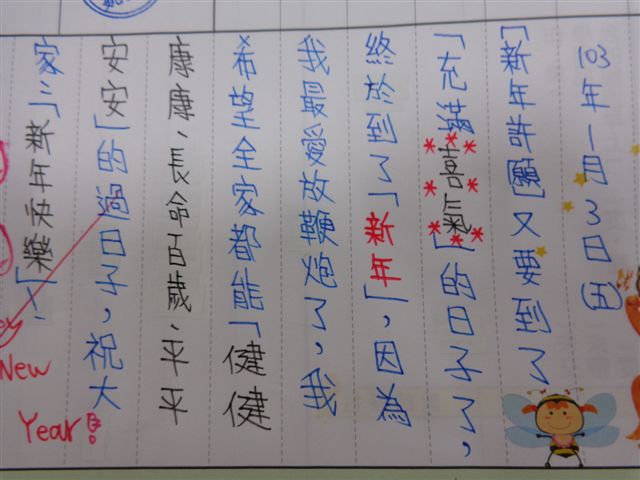 103年1月3日(五)
「新年許願」又要到了
「充滿喜氣」的日子了，
終於到了「新年」，因為
我最愛放鞭炮了，我
希望全家都能「健健
康康、長命百歲、平平
安安」的過日子，祝大
家：「新年快樂」！
New
Year!